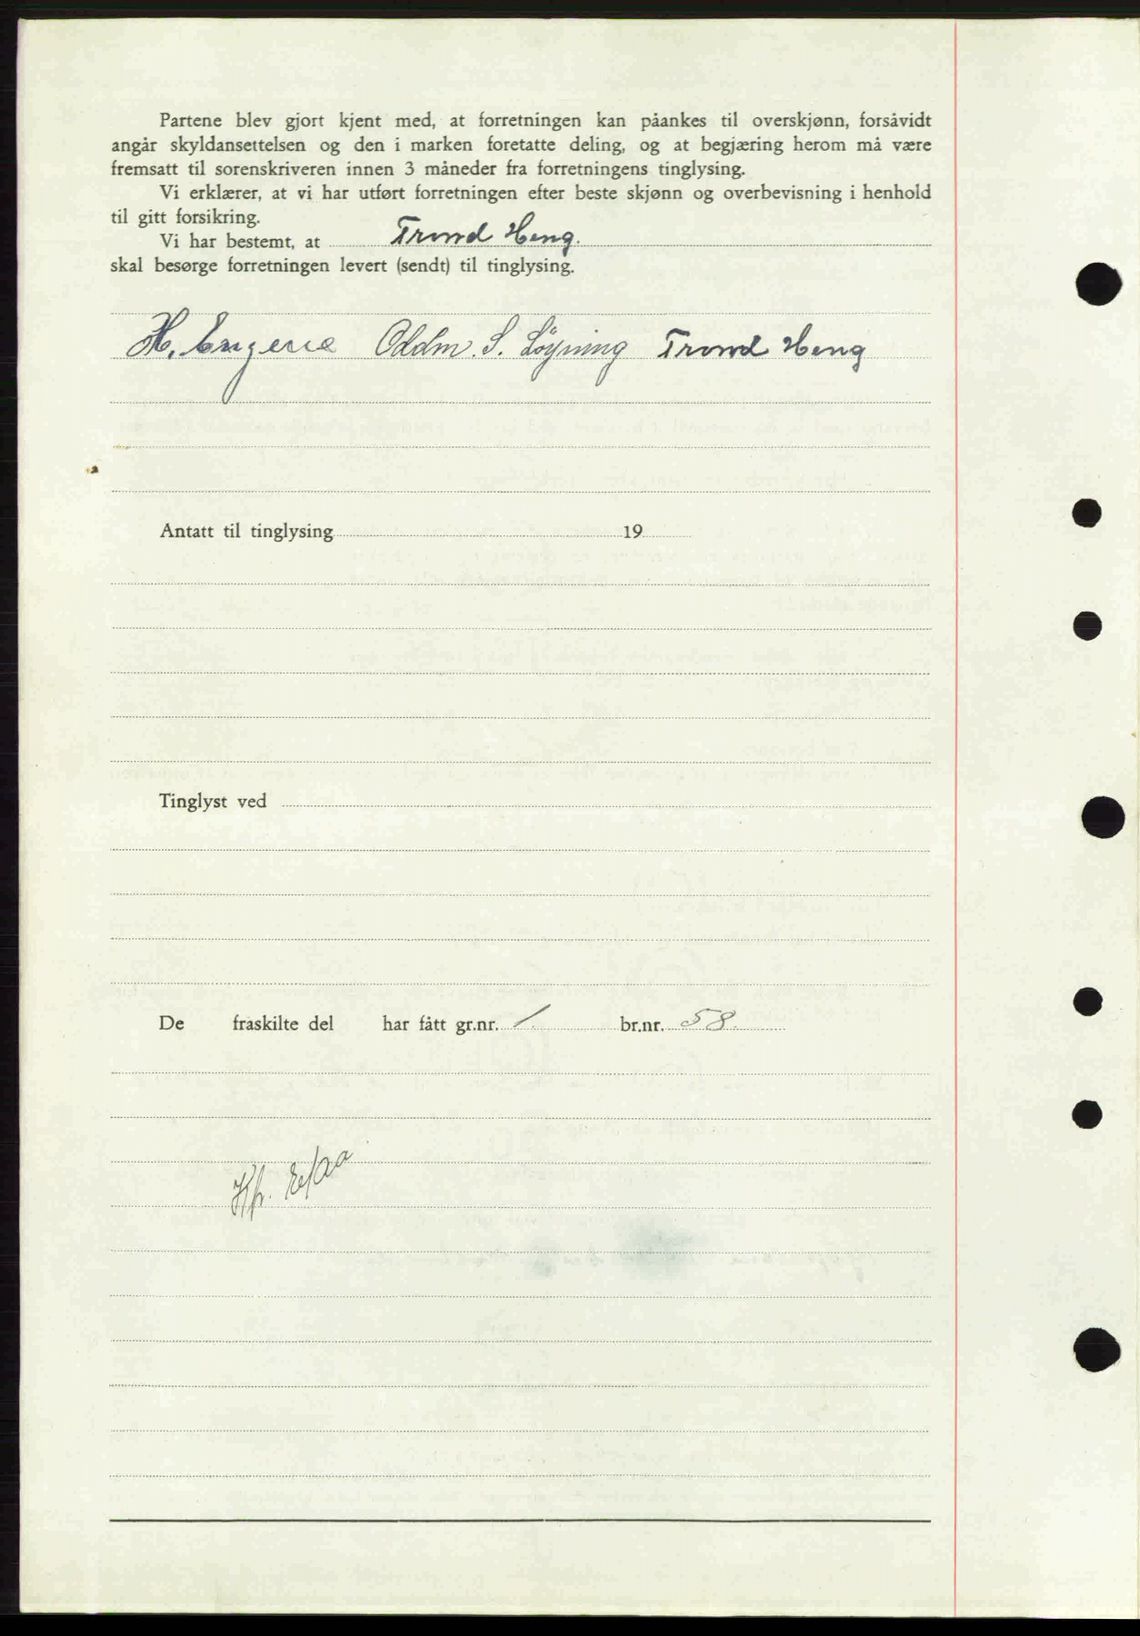 Partene blev gjort kjent med, at forretningen kan påankes til overskjønn, forsåvidt
angår skyldansettelsen og den i marken foretatte deling, og at begjæring herom må være
fremsatt til sorenskriveren innen 3 måneder fra forretningens tinglysing.
Vi erklærer, at vi har utført forretningen efter beste skjønn og overbevisning i henhold
til gitt forsikring.
Vi har bestemt, at Trond Heng.
skal besørge forretningen levert (sendt) til tinglysing.
H. Engene Oddm. S. Löyning Trond Heng
Antatt til tinglysing 19
Tinglyst ved
De fraskilte del har fått gr.nr. 1. br.nr. 58.